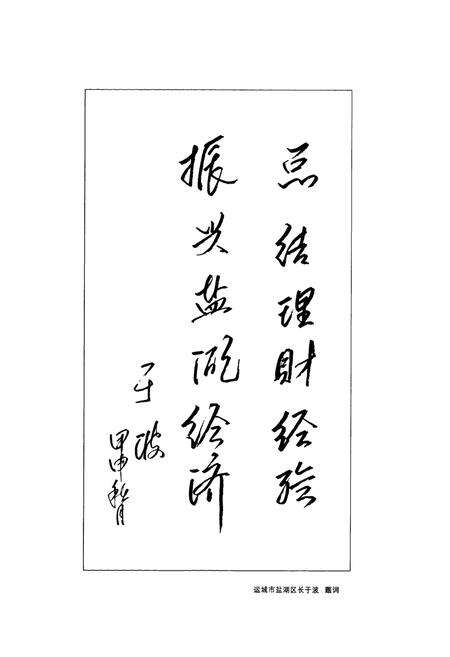 总结理财经验
振兴盐湖经济
于波
甲申秋月
运城市盐湖区长于波 题词